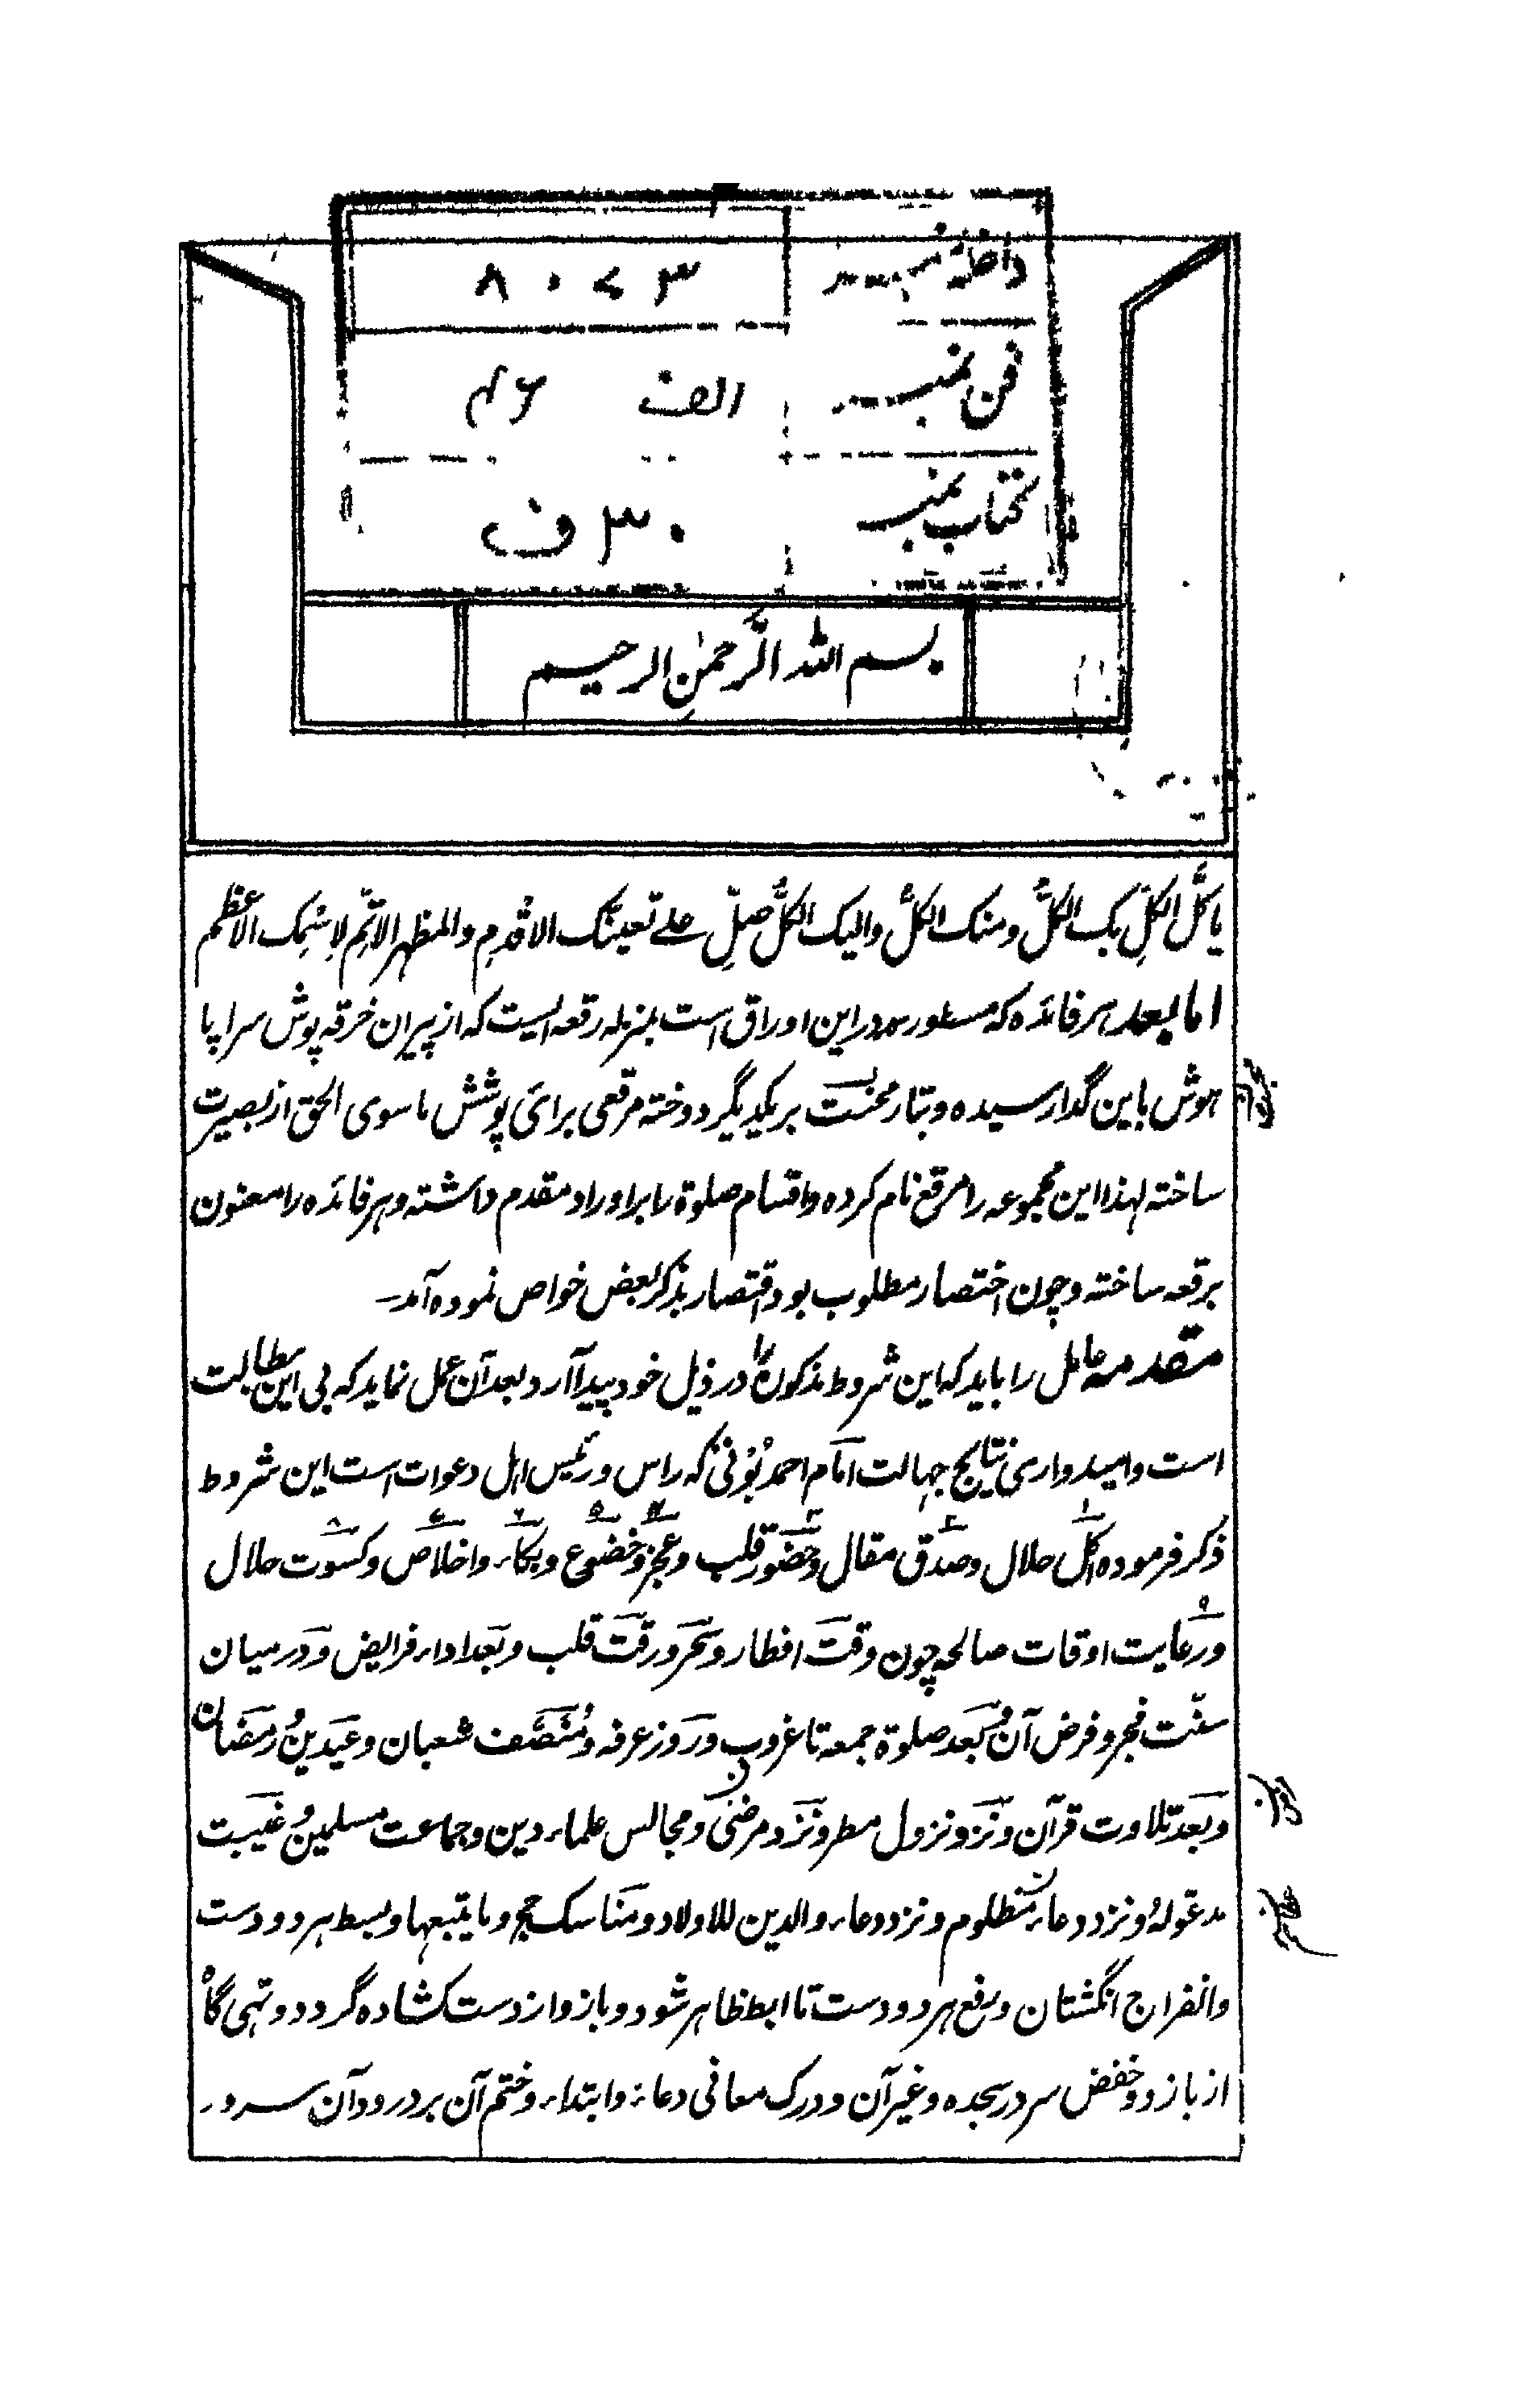 داخلہ نمبر ٨٠٧٣
فن نمبر الف
کتاب نمبر ٣٠ ف
بسم الله الرَّحمٰنِ الرحیم
یا کلَّ الکلِّ بک الکلُّ ومنک الکلُّ والیک الکلُّ صلِّ علے تعینک الاقدمِ والمظہرِ الاتمِّ لِاسْمِک الاعظم
اما بعد ہر فائدہ کہ مسطور در این اوراق است بمنزلہ رقعہ ایست کہ از پیران خرقہ پوش سراپا
ہوش باین گدا رسیدہ و بتار محبت بر یکدیگر دوختہ مرقعی برائی پوشش ماسوی الحق از بصیرت
ساختہ لہذا این مجموعہ را مرقع نام کردہ و اقسام صلوة را بر اوراد مقدم داشتہ و ہر فائدہ را معنون
برقعہ ساختہ و چون اختصار مطلوب بود اقتصار بذکر بعض خواص نمودہ آمد
مقدمہ عامل را باید کہ این شروط مذکورہ را در ذیل خود پیدا آرد و بعد آن عمل نماید کہ بی این بطالت
است و امیدواری نتایج جہالت امام احمد بُوْنی کہ راس و رئیس اہل دعوات است این شروط
ذکر فرمودہ اکل حلال و صدق مقال و حضور قلب و عجز و خضوع و بکاء و اخلاص و کسوت حلال
و رعایت اوقات صالحہ چون وقت افطار و سحر و رقت قلب و بعد اداء فرایض و در میان
سنّت فجر و فرض آن و بعد صلوة جمعہ تا غروب و روز عرفہ و مُنَصَّف شعبان و عیدین و رمضان
و بعد تلاوت قرآن و نزد نزول مطر و نزد مرضی و مجالس علماء دین و جماعت مسلمین و غیبت
مدعوّلہ و نزد دعاء مظلوم و نزد دعاء والدین للاولاد و مناسک حج و ما یتبعہا و بسط ہر دو دست
و انفراج انگشتان و رفع ہر دو دست تا ابط ظاہر شود و بازو از دست کشادہ گردد و تہی گاہ
از بازو و خفض سر در سجدہ و غیر آن و درک معانی دعاء و ابتداء و ختم آن بر درود آن سرور